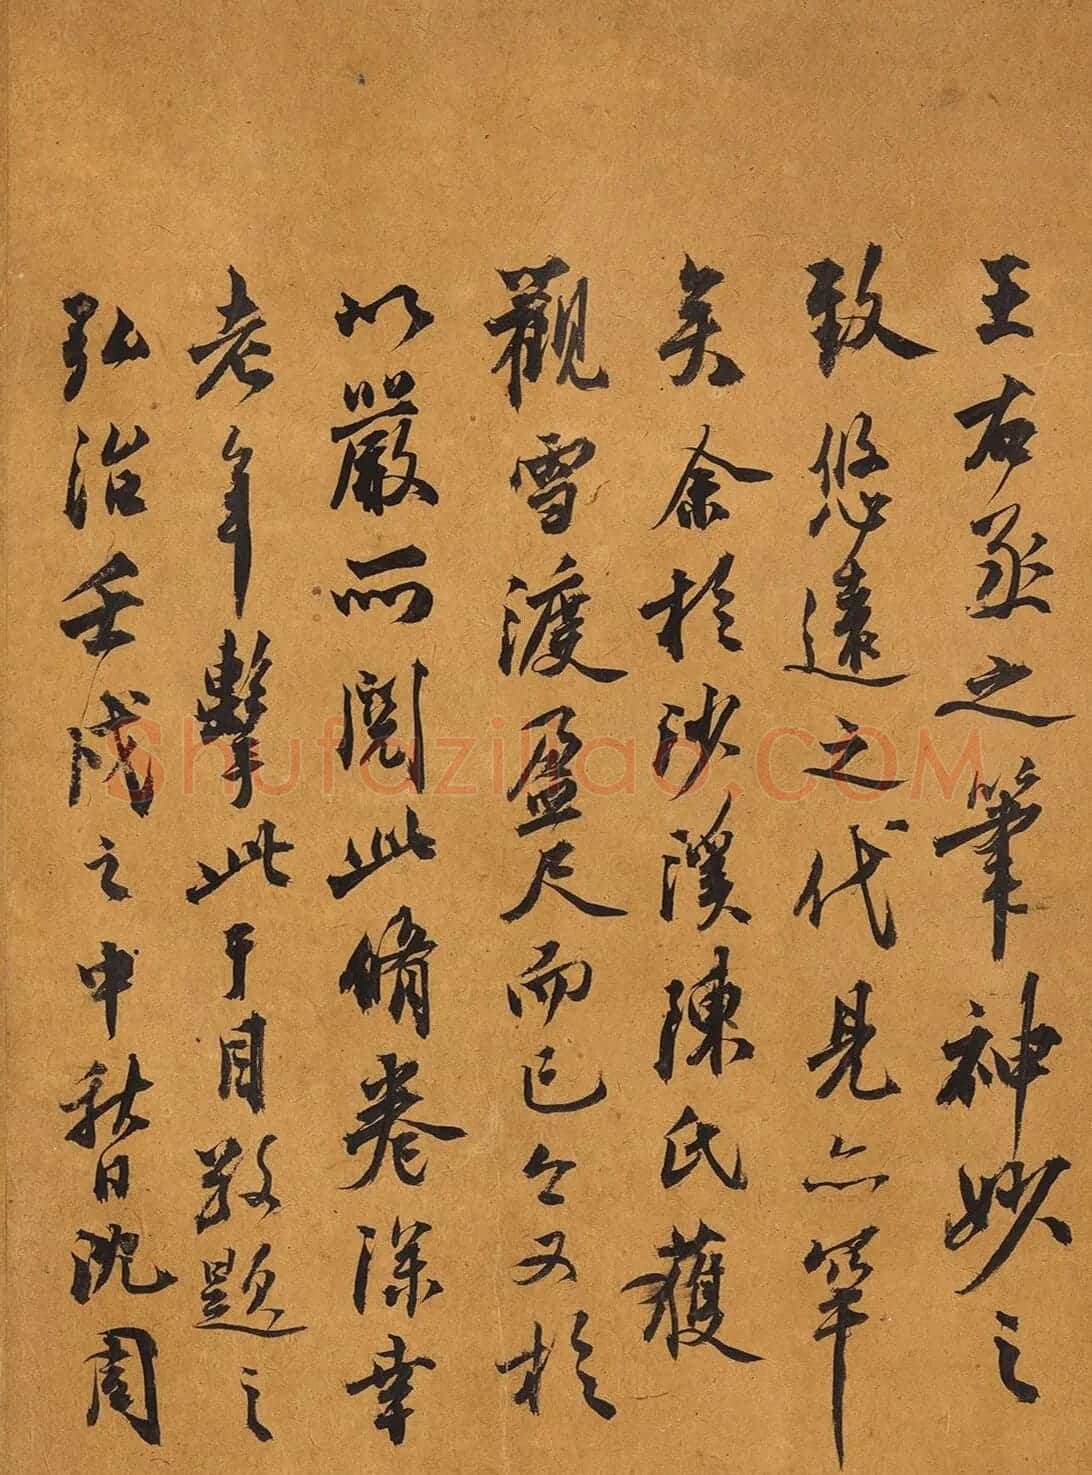 王右丞之筆神妙之
致悠遠之代見亦罕
矣余於沙溪陳氏獲
觀雪渡盈尺而已今又於
以嚴所閱此脩卷深幸
老年擊此于目敬題之
弘治壬戌之中秋日沈周
Shufaziliao.COM